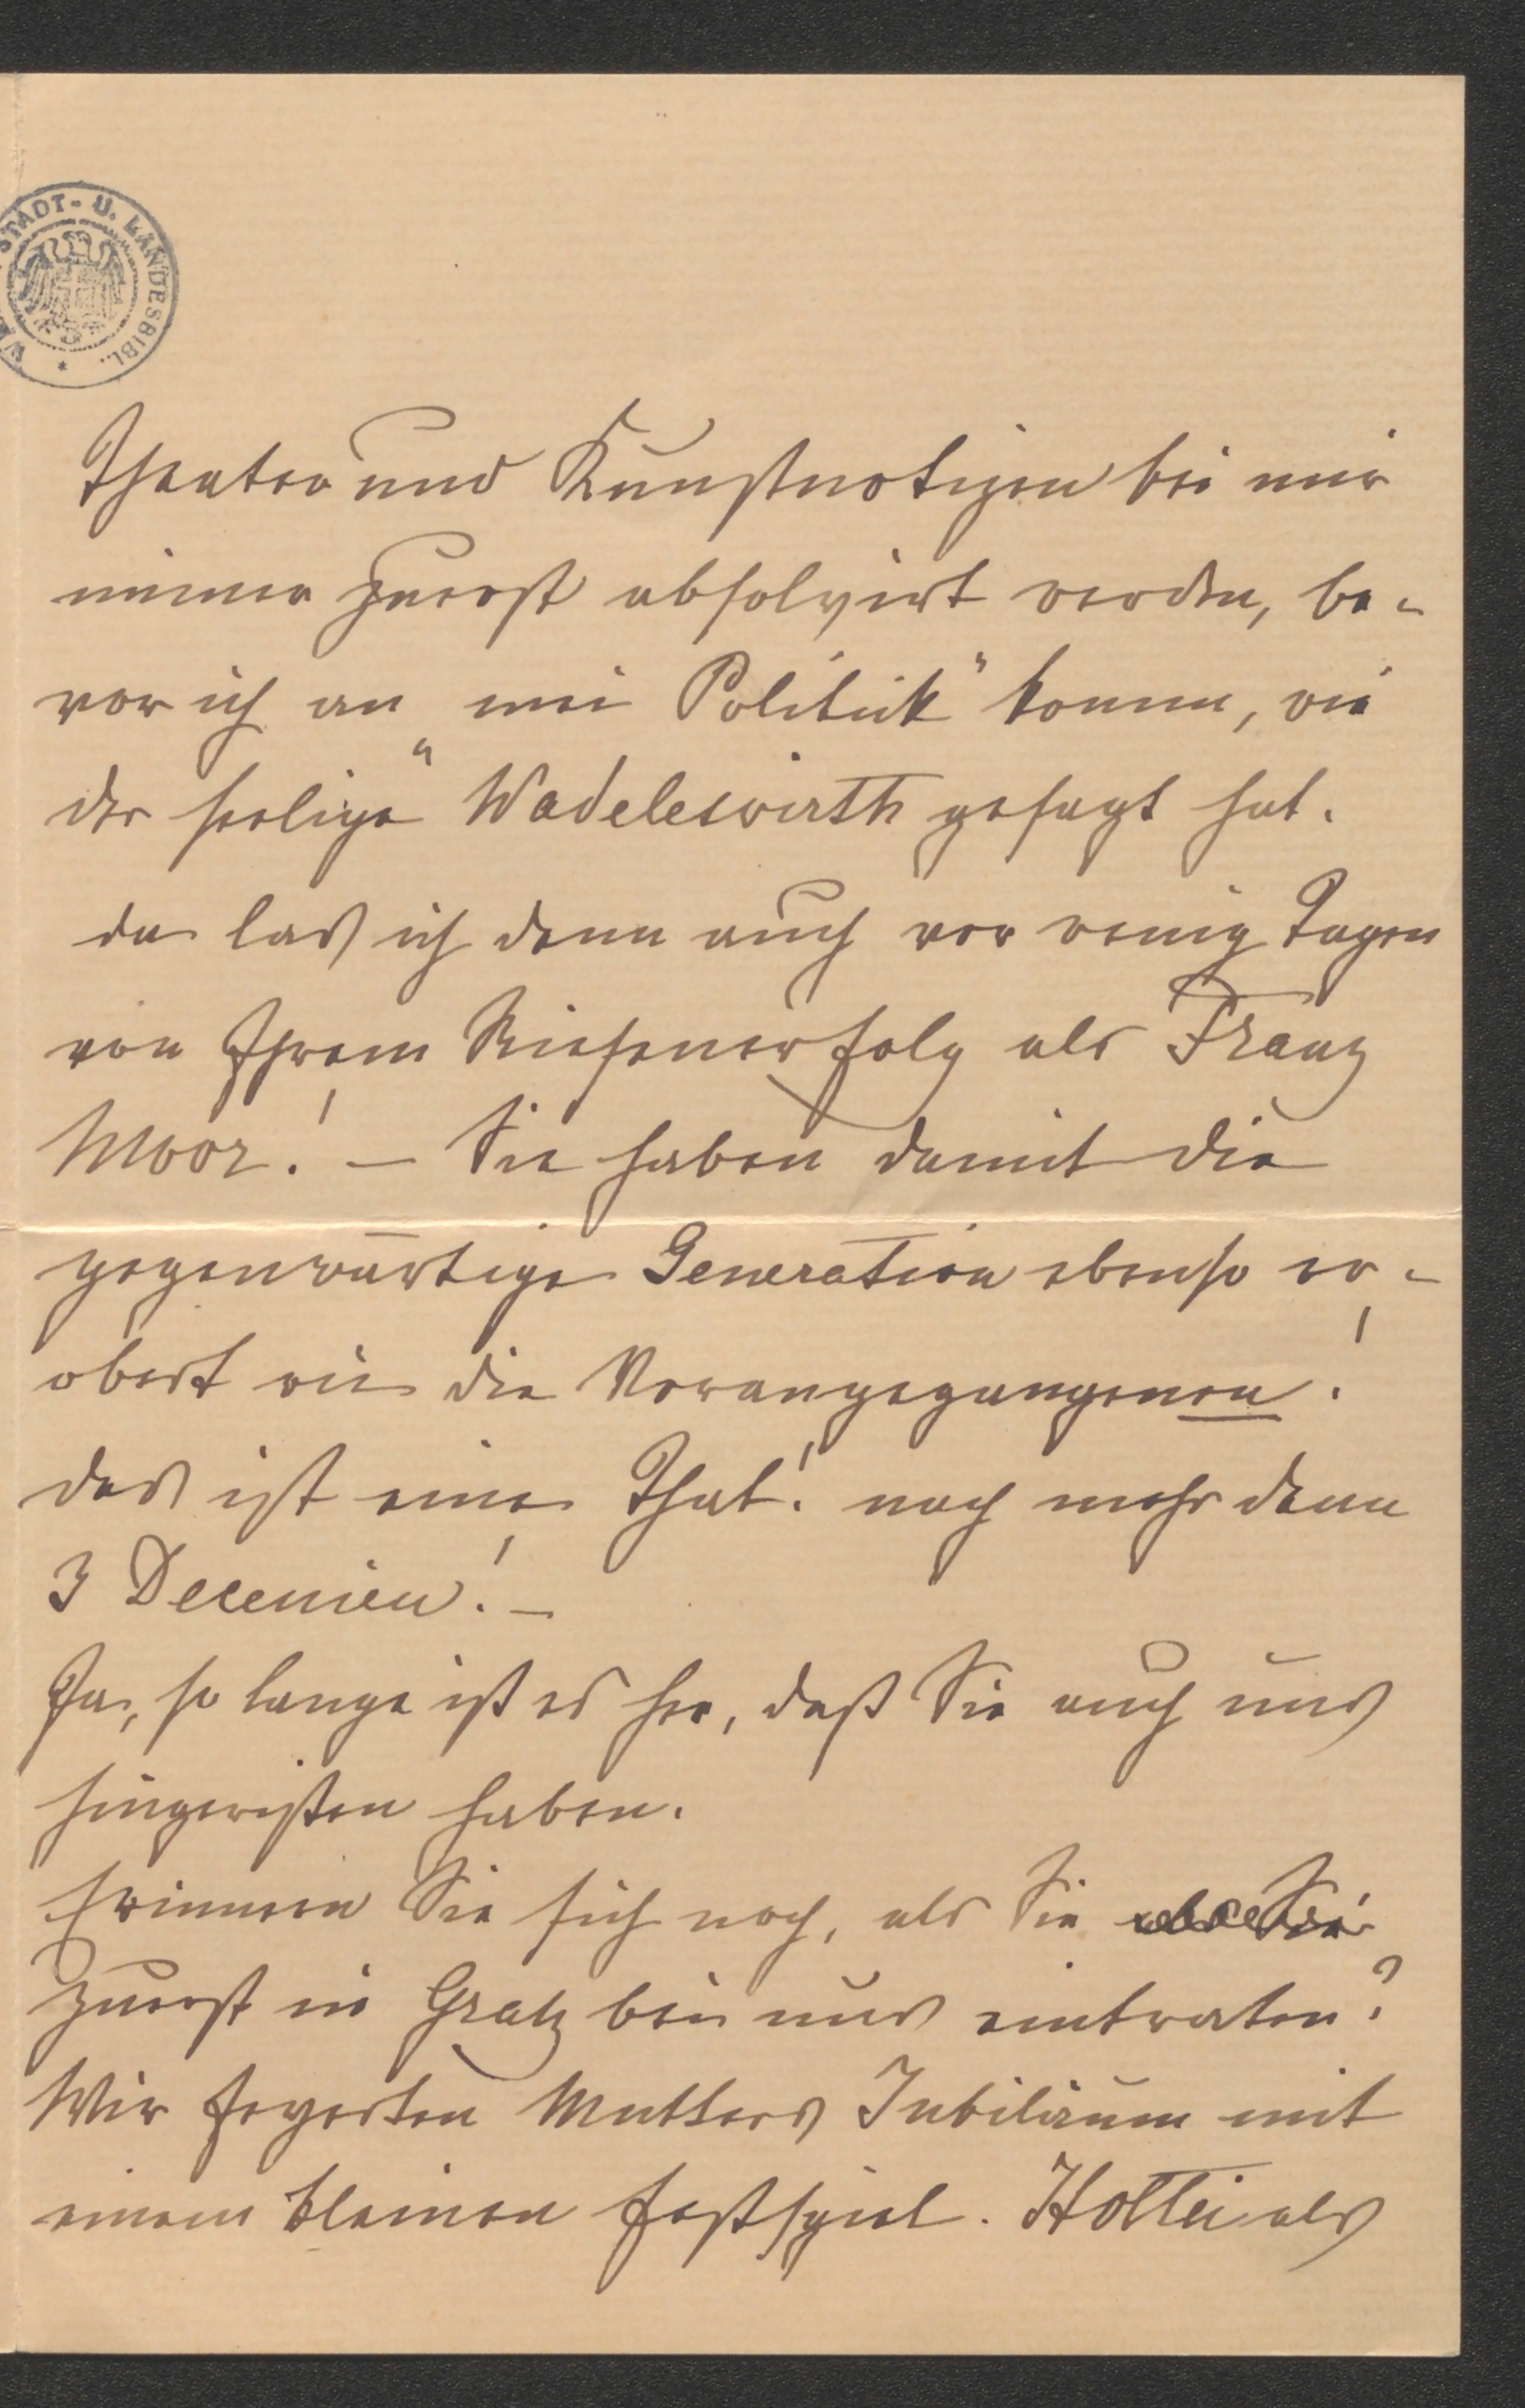 STADT- U. LANDESBIBL.
Theater und Kunstnotizen bei mir
immer zuerst absolvirt werden, be-
vor ich an "mei Politik" komme, wie
der seelige Wadeleswirth gesagt hat.
da las ich denn auch vor wenig Tagen
von Ihrem Riesenerfolg als Franz
Moor! – Sie haben damit die
gegenwärtige Generation ebenso er-
obert wie die Vorangegangenen!
das ist eine That! nach mehr denn
3 Decenien! –
Ja, so lange ist es her, daß Sie auch uns
hingerißen haben.
Erinnern Sie sich noch, als Sie
zuerst in Gratz bei uns eintraten?
Wir feyerten Mutters Jubiläum mit
einem kleinen Festspiel. Holtei als